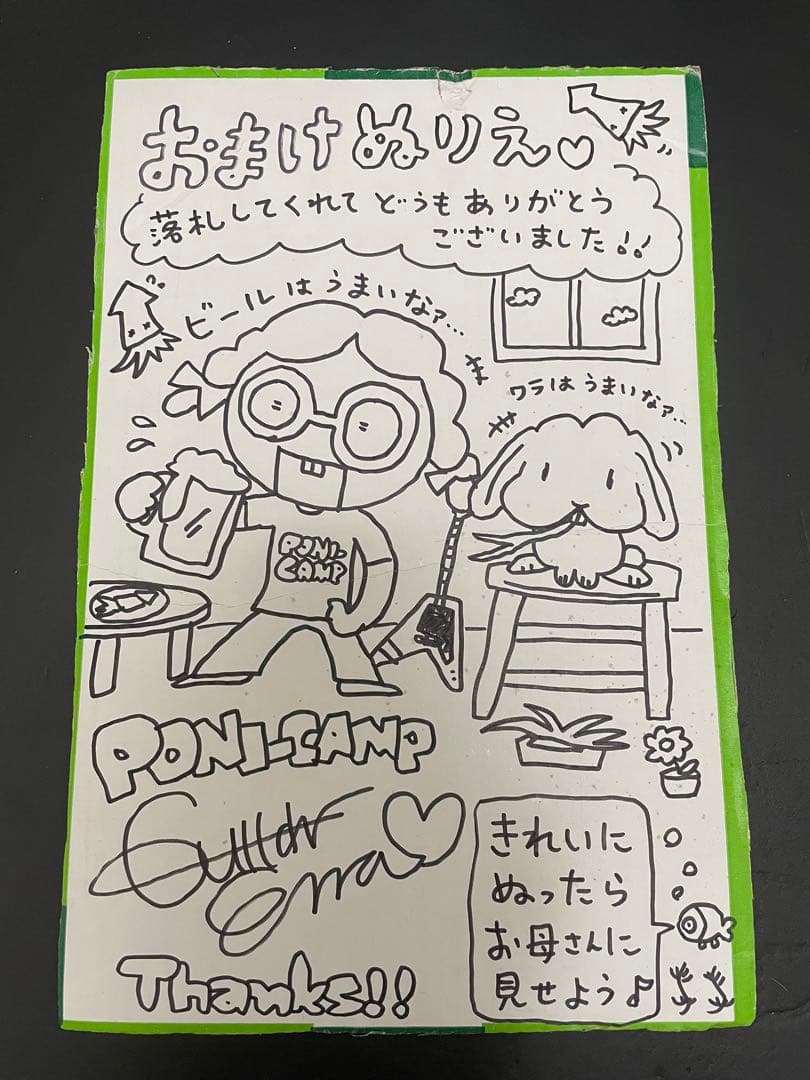 おまけぬりえ♡
落札してくれてどうもありがとう
ございました!!
ビールはうまいなァ…
ワラはうまいなァ…
PONI-
CAMP
PONI-CAMP
Thanks!!
きれいに
ぬったら
お母さんに
見せよう♪